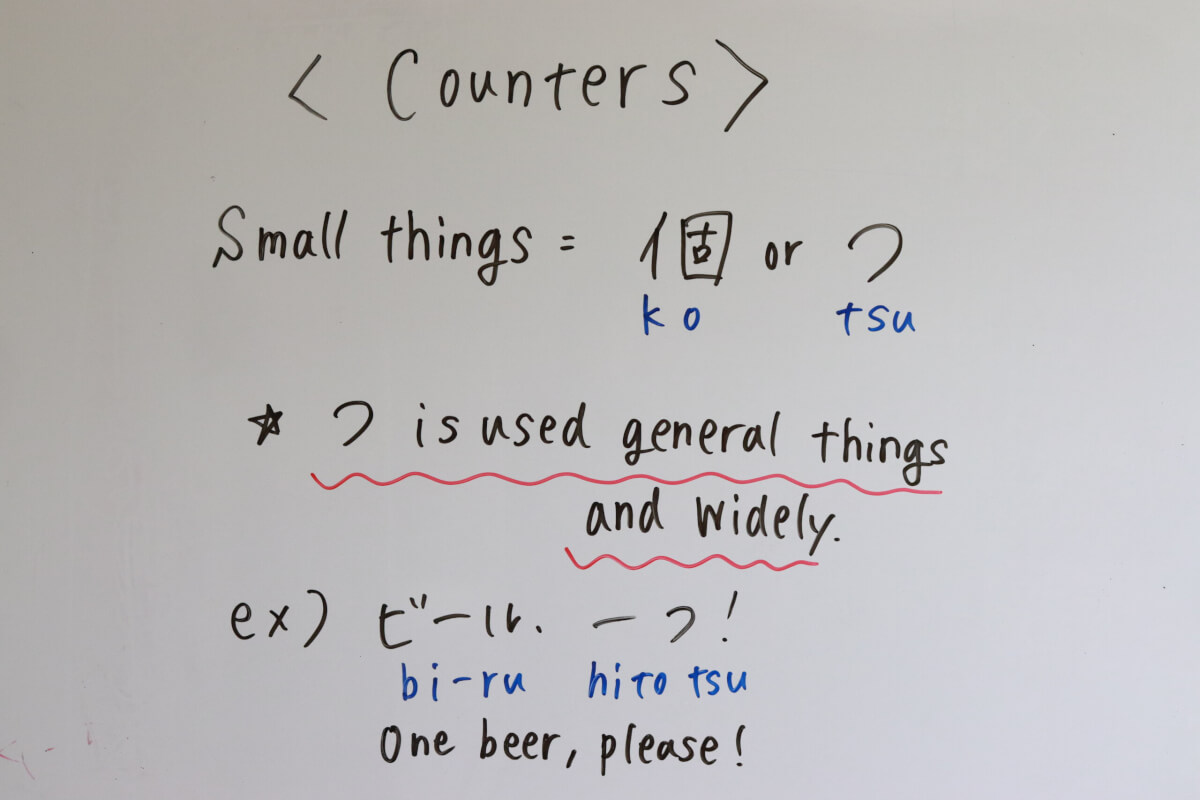 < Counters >
Small things = 個 or つ
ko tsu
☆ つ is used general things
and widely.
ex) ビール、一つ!
bi-ru hito tsu
One beer, please!